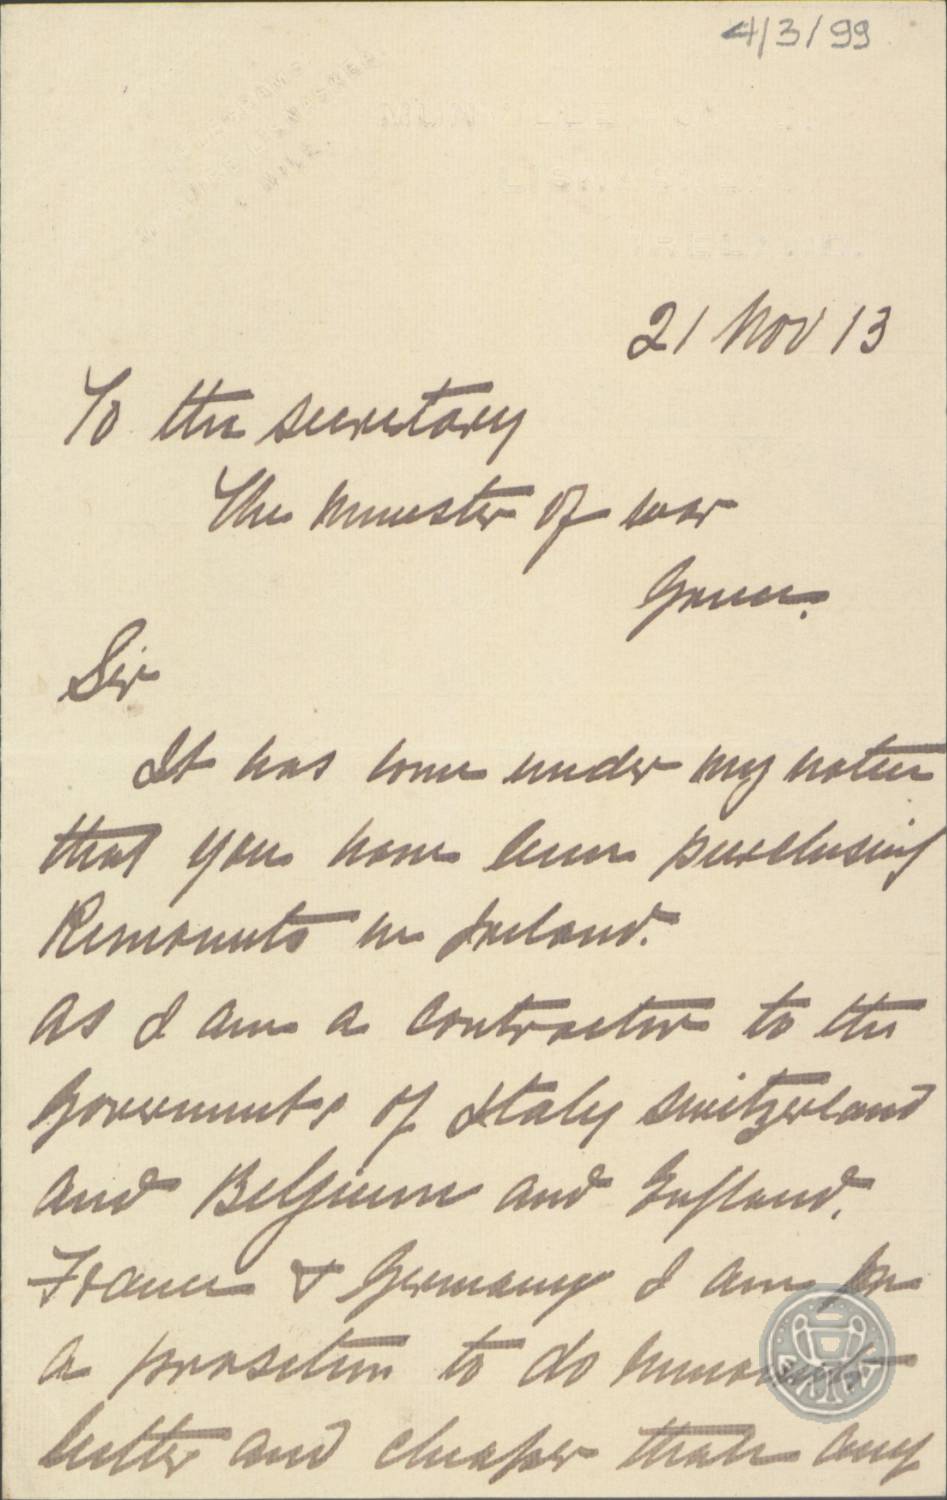 4/3/99
21 Nov 13
To the secretary
The Minister of war
Sir
It has come under my notice
that you have been purchasing
Remounts in Ireland.
as I am a contractor to the
Governments of Italy switzerland
and Belgium and England,
France & Germany I am in
a position to do
better and cheaper than any